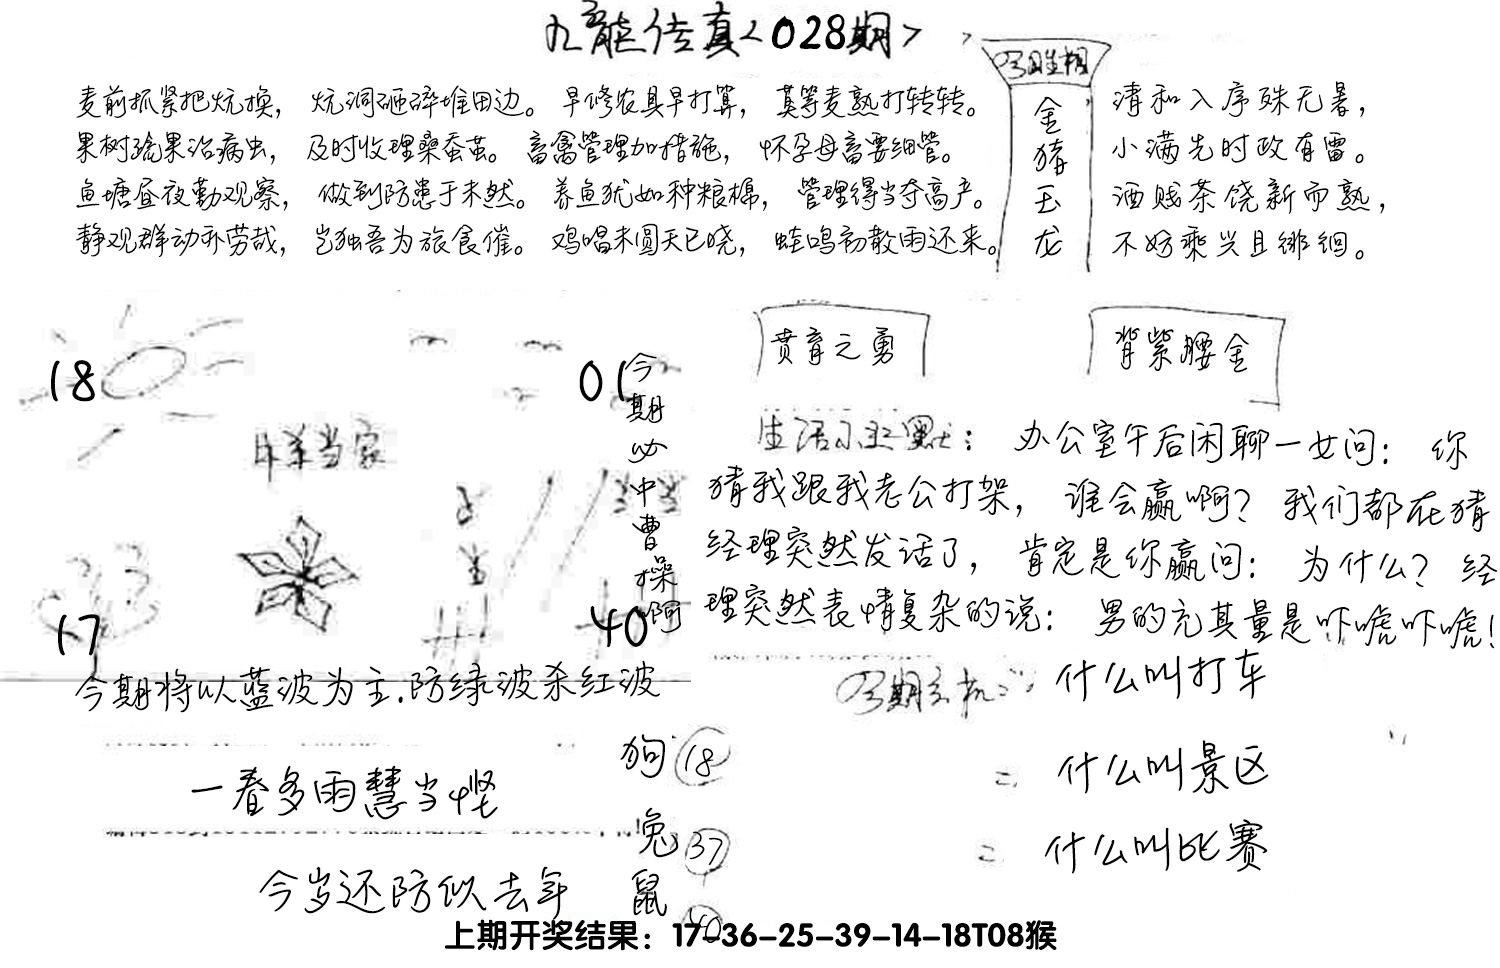 九龙传真<028期>
今期生相
金猪玉龙
麦前抓紧把炕换， 炕洞砸碎堆田边。 早修农具早打算， 莫等麦熟打转转。
果树疏果治病虫， 及时收理桑蚕茧。 畜禽管理加措施， 怀孕母畜要细管。
鱼塘昼夜勤观察， 做到防患于未然。 养鱼犹如种粮棉， 管理得当夺高产。
静观群动亦劳哉， 岂独吾为旅食催。 鸡唱未圆天已晓， 蛙鸣初散雨还来。
清和入序殊无暑，
小满先时政有雷。
酒贱茶饶新而熟，
不妨乘兴且徘徊。
18
01
今期必中曹操啊
羊当家
17
40
今期将以蓝波为主.防绿波杀红波
贲育之勇
背紫腰金
生活幽默： 办公室午后闲聊一女问： 你
猜我跟我老公打架， 谁会赢啊？ 我们都在猜
经理突然发话了， 肯定是你赢问： 为什么？ 经
理突然表情复杂的说： 男的充其量是吓唬吓唬！
今期玄机： 什么叫打车
= 什么叫景区
= 什么叫比赛
一春多雨慧当悭
今岁还防似去年
狗 18
兔 37
鼠 40
上期开奖结果：17-36-25-39-14-18T08猴